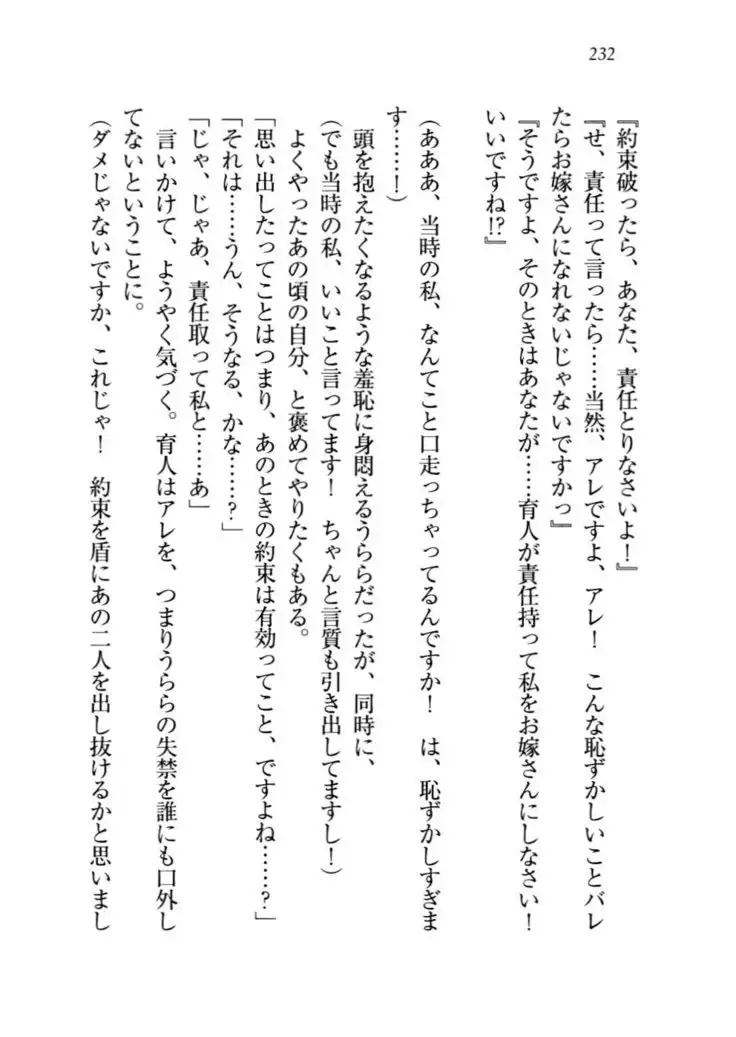 232
『約束破ったら、あなた、責任とりなさいよ！』
『せ、責任って言ったら……当然、アレですよ、アレ！　こんな恥ずかしいことバレ
たらお嫁さんになれないじゃないですかっ』
『そうですよ、そのときはあなたが……育人が責任持って私をお嫁さんにしなさい！
いいですね!?』
（あああ、当時の私、なんてこと口走っちゃってるんですか！　は、恥ずかしすぎま
す……！）
頭を抱えたくなるような羞恥に身悶えるうららだったが、同時に、
（でも当時の私、いいこと言ってます！　ちゃんと言質も引き出してますし！）
よくやったあの頃の自分、と褒めてやりたくもある。
「思い出したってことはつまり、あのときの約束は有効ってこと、ですよね……？」
「それは……うん、そうなる、かな……？」
「じゃ、じゃあ、責任取って私と……あ」
言いかけて、ようやく気づく。育人はアレを、つまりうららの失禁を誰にも口外し
てないということに。
（ダメじゃないですか、これじゃ！　約束を盾にあの二人を出し抜けるかと思いまし